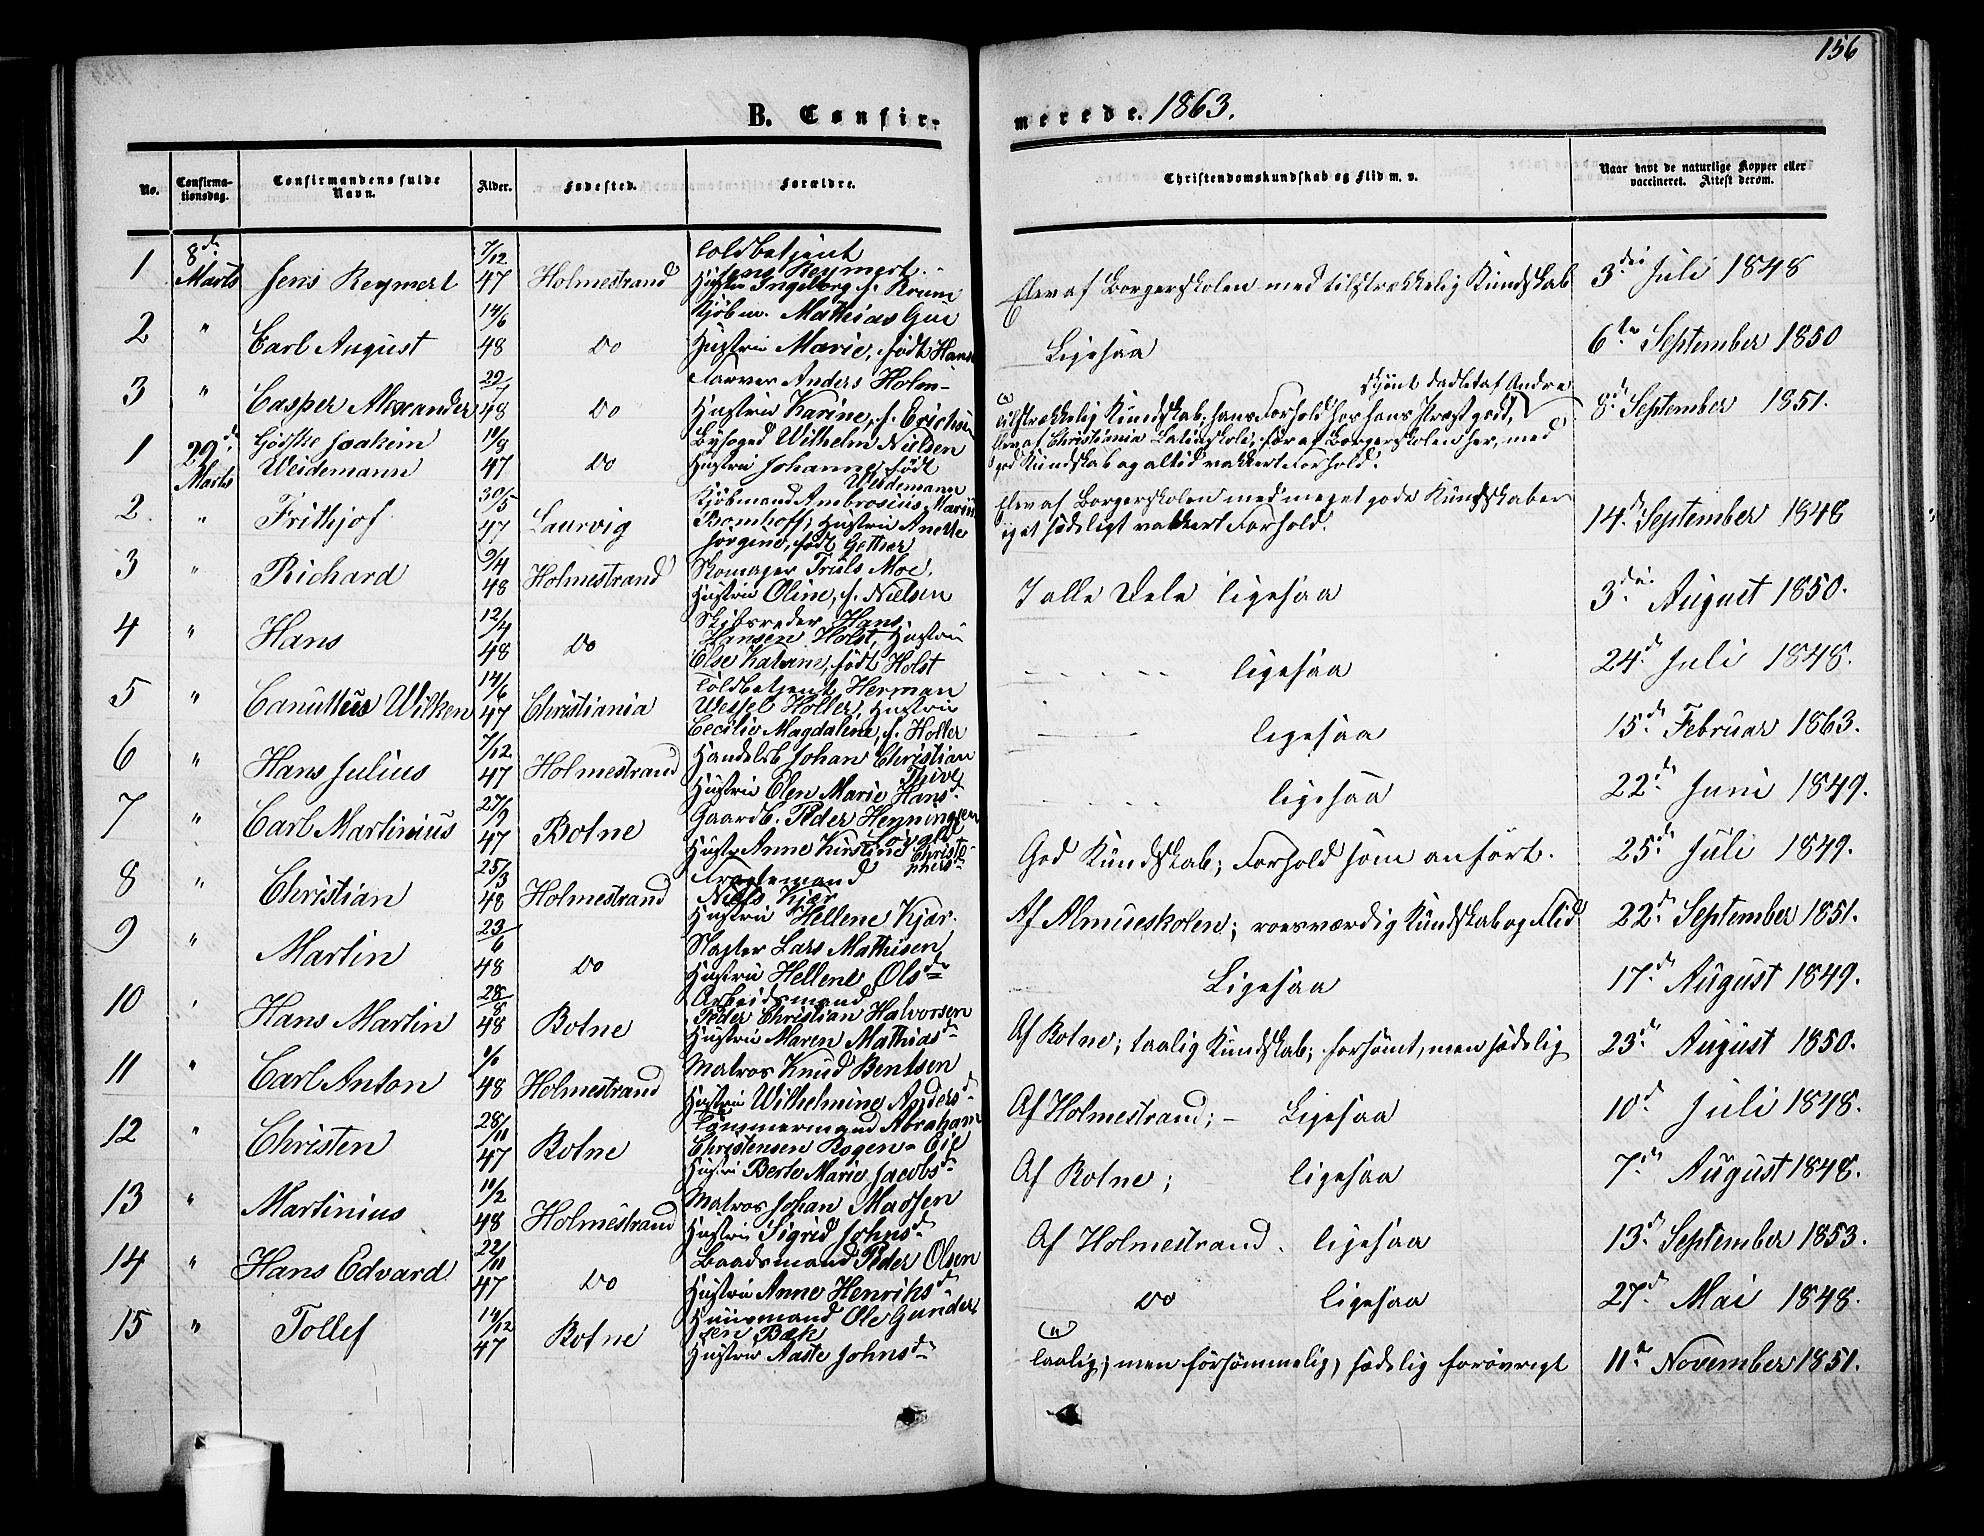 156
B. Confirmerede. 1863.
No. Confirmationsdag. Confirmandens fulde Navn. Alder. Fødested. Forældre. Christendomskundskab og Flid m. v. Naar havt de naturlige Kopper eller vaccineret. Attest derom.
1 8de Marts Jens Reymert 7/12 47 Holmestrand Toldbetjent
Jens Reymert.
Hustru Ingeborg f. Bruun
Elev af Borgerskolen med tilstrækkelig Kundskab 3die Juli 1848
2 " Carl August 14/6 48 Do Kjøbm. Mathias Gue
Hustru Marie, født Hans
Ligesaa 6te September 1850
3 " Casper Alexander 29/7 48 Do Farver Anders Holm-
Hustru Karine, f. Erichsen
skjönt dadlet af Andre
Tilstrækkelig Kundskab, hans Forhold hos hans Præst godt, 8de September 1851.
1 29de Marts Gödtke Joakim
Weidemann 11/8 47 Do Byfoged Wilhelm Nielsen
Hustru Johanne, født
Weidemann
Elev af Christiania Latinskole; før af Borgerskolen her, med
god Kundskab og altid vakkert Forhold.
2 " Frithjof 30/5 47 Laurvig Kjøbmand Ambrosius Marius
Bomhoff; Hustru Anette
Jörgine, født Gether
Elev af Borgerskolen med meget gode Kundskaber
og et sædeligt vakkert Forhold. 14de September 1848
3 " Richard 9/4 48 Holmestrand Skomager Truls Moe,
Hustru Oline, f. Nielsen
I alle Dele ligesaa 3die August 1850.
4 " Hans 12/4 48 Do Skibsreder Hans
Hansen Holst, Hustru
Else Katrine, født Holst
ligesaa 24de Juli 1848.
5 " Canuttus Wilken 14/6 47 Christiania Toldbetjent Herman
Wessel Holler, Hustru
Cecilie Magdaline, f. Holler
ligesaa 15de Februar 1863.
6 " Hans Julius 7/12 47 Holmestrand Handelsb. Johan Christian
Thive
Hustru Elen Marie Hansd.
ligesaa 22de Juni 1849.
7 " Carl Martinius 27/9 47 Botne Gaardb. Peder Henningsen
Hustr. Anne Kirstine Christophersd.
God Kundskab; Forhold som anført. 25de Juli 1849.
8 " Christian 25/3 48 Holmestrand Fragtemand
Niels Kjær
Hustru Hellene Kjær.
Af Almueskolen; roesværdig Kundskab og Flid 22de September 1851.
9 " Martin 23/6 48 Do Slagter Lars Mathisen
Hustru Hellene Olsd.
Ligesaa 17de August 1849.
10 " Hans Martin 28/8 48 Botne Arbeidsmand
Peder Christian Halvorsen
Hustru Maren Mathiasd.
Af Botne; taalig Kundskab; forsømt, men sædelig 23de August 1850.
11 " Carl Anton 48 Holmestrand Matros Knud Bentsen
Hustru Wilhelmine Andersd.
Af Holmestrand; - Ligesaa 10de Juli 1848.
12 " Christen 28/11 47 Botne Tømmermand Abraham
Christensen Rogen-Eie
Hustru Berte Marie Jacobsd.
Af Botne; ligesaa 7de August 1848.
13 " Martinius 11/2 48 Holmestrand Matros Johan Madsen
Hustru Sigrid Johnsd.
Af Holmestrand. ligesaa 13de September 1853.
14 " Hans Edvard 22/11 47 Do Baadsmand Peder Olsen
Hustru Anne Henriksd.
Do ligesaa 27de Mai 1848.
15 " Tollef 14/12 47 Botne Huusmand Ole Gundersen Bæk
Hustru Aaste Johnsd.
taalig; men forsømmelig, sædelig forøvrigt 11te November 1851.